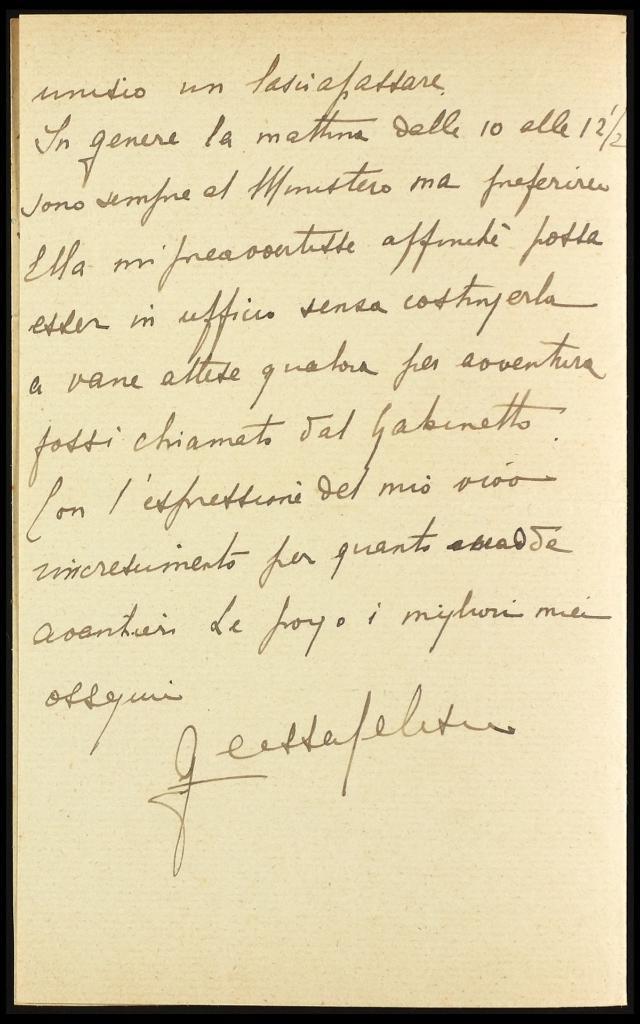 unisio un lasciapassare.
In genere la mattina dalle 10 alle 12 1/2
sono sempre al Ministero ma preferirei
Ella mi preavvertisse affinchè possa
esser in ufficio senza costringerla
a vane attese qualora per avventura
fossi chiamato dal Gabinetto.
Con l'espressione del mio vivo
rincrescimento per quanto accadde
avantieri Le porgo i migliori miei
ossequi